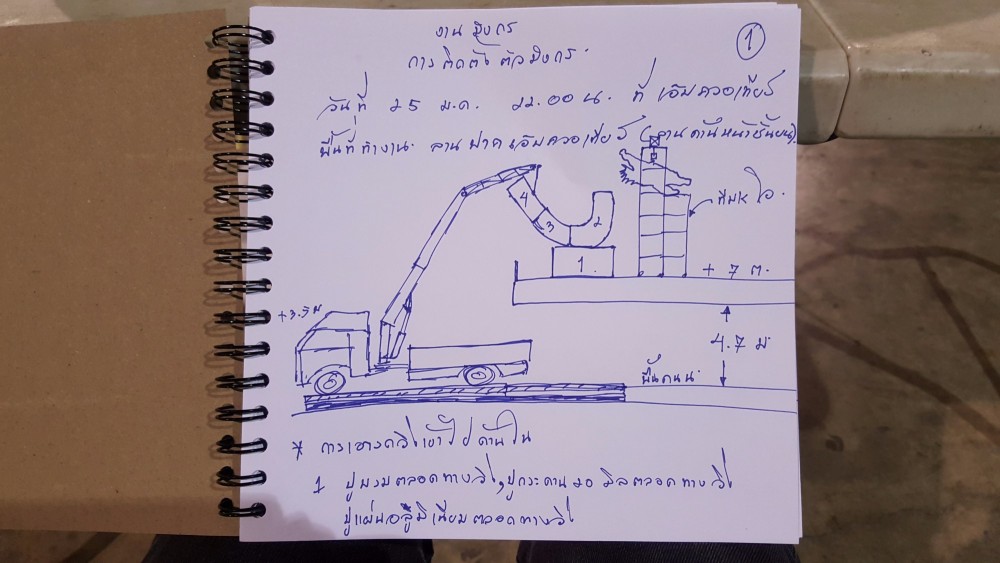 ①
งาน มังกร
การ ติดตั้ง ตัวมังกร
วันที่ 25 ม.ค. 22.00 น. ที่ เอ็มควอเทียร์
พื้นที่ทำงาน ลานปาคเอ็มควอเทียร์ (ลานด้านหน้าชั้นบน)
4
3
2
1.
+ 7 ต.
4.7 ม
พื้นถนน
* การเอารถสิเข้าไปด้านใน
1 ปูพรมตลอดทางวิ่ง, ปูกระดาน 20 มิลตลอดทางวิ่ง
ปูแผ่นอลูมิเนียมตลอดทางวิ่ง